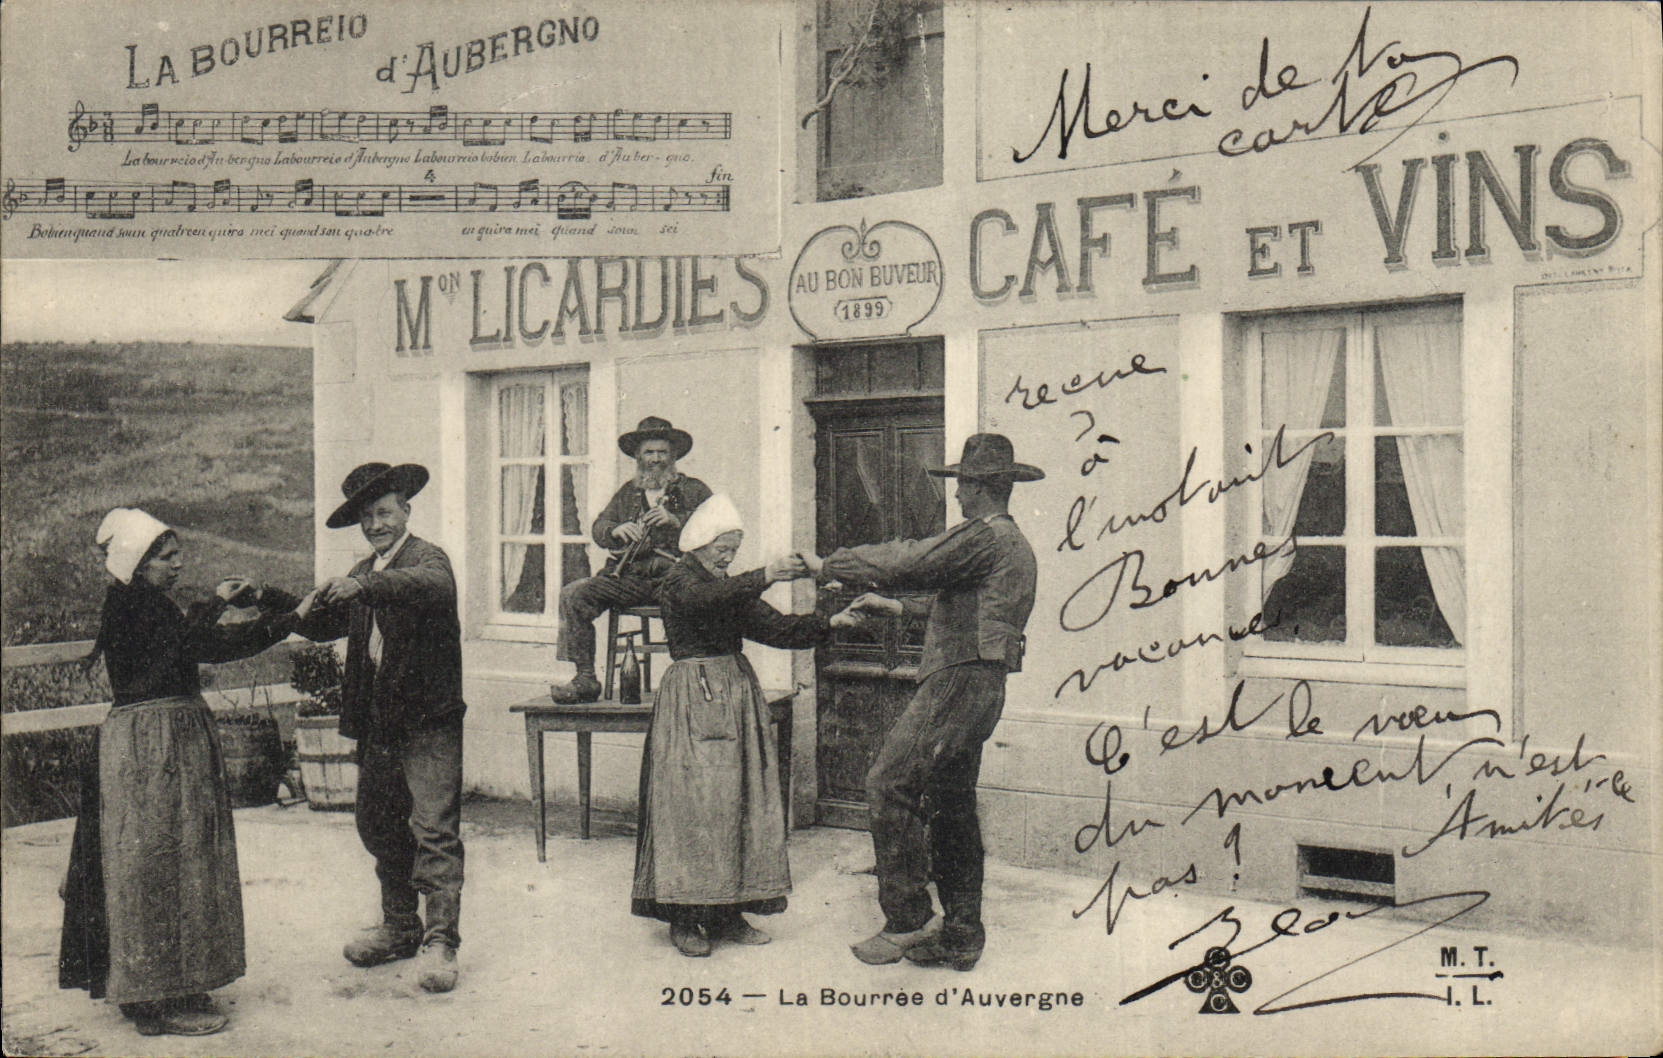 LA BOURREIO
d'AUBERGNO
La bourreio d'Au-ber-gno La bourreio d'Aubergno La bourreio bobien La bourrio d'Auber-gno.
4
fin
Bobien quand soun quatre en quiro mei quand son quatre en quiro mei quand soun sei
Mon LICARDIES
AU BON BUVEUR
1899
CAFÉ ET VINS
Merci de ta
carte
recue
à
l'instant
Bonnes
vacances.
C'est le vœu
du moment, n'est-ce
pas ?
Amitiés
2054 — La Bourrée d'Auvergne
C
C & C
C
M. T.
I. L.